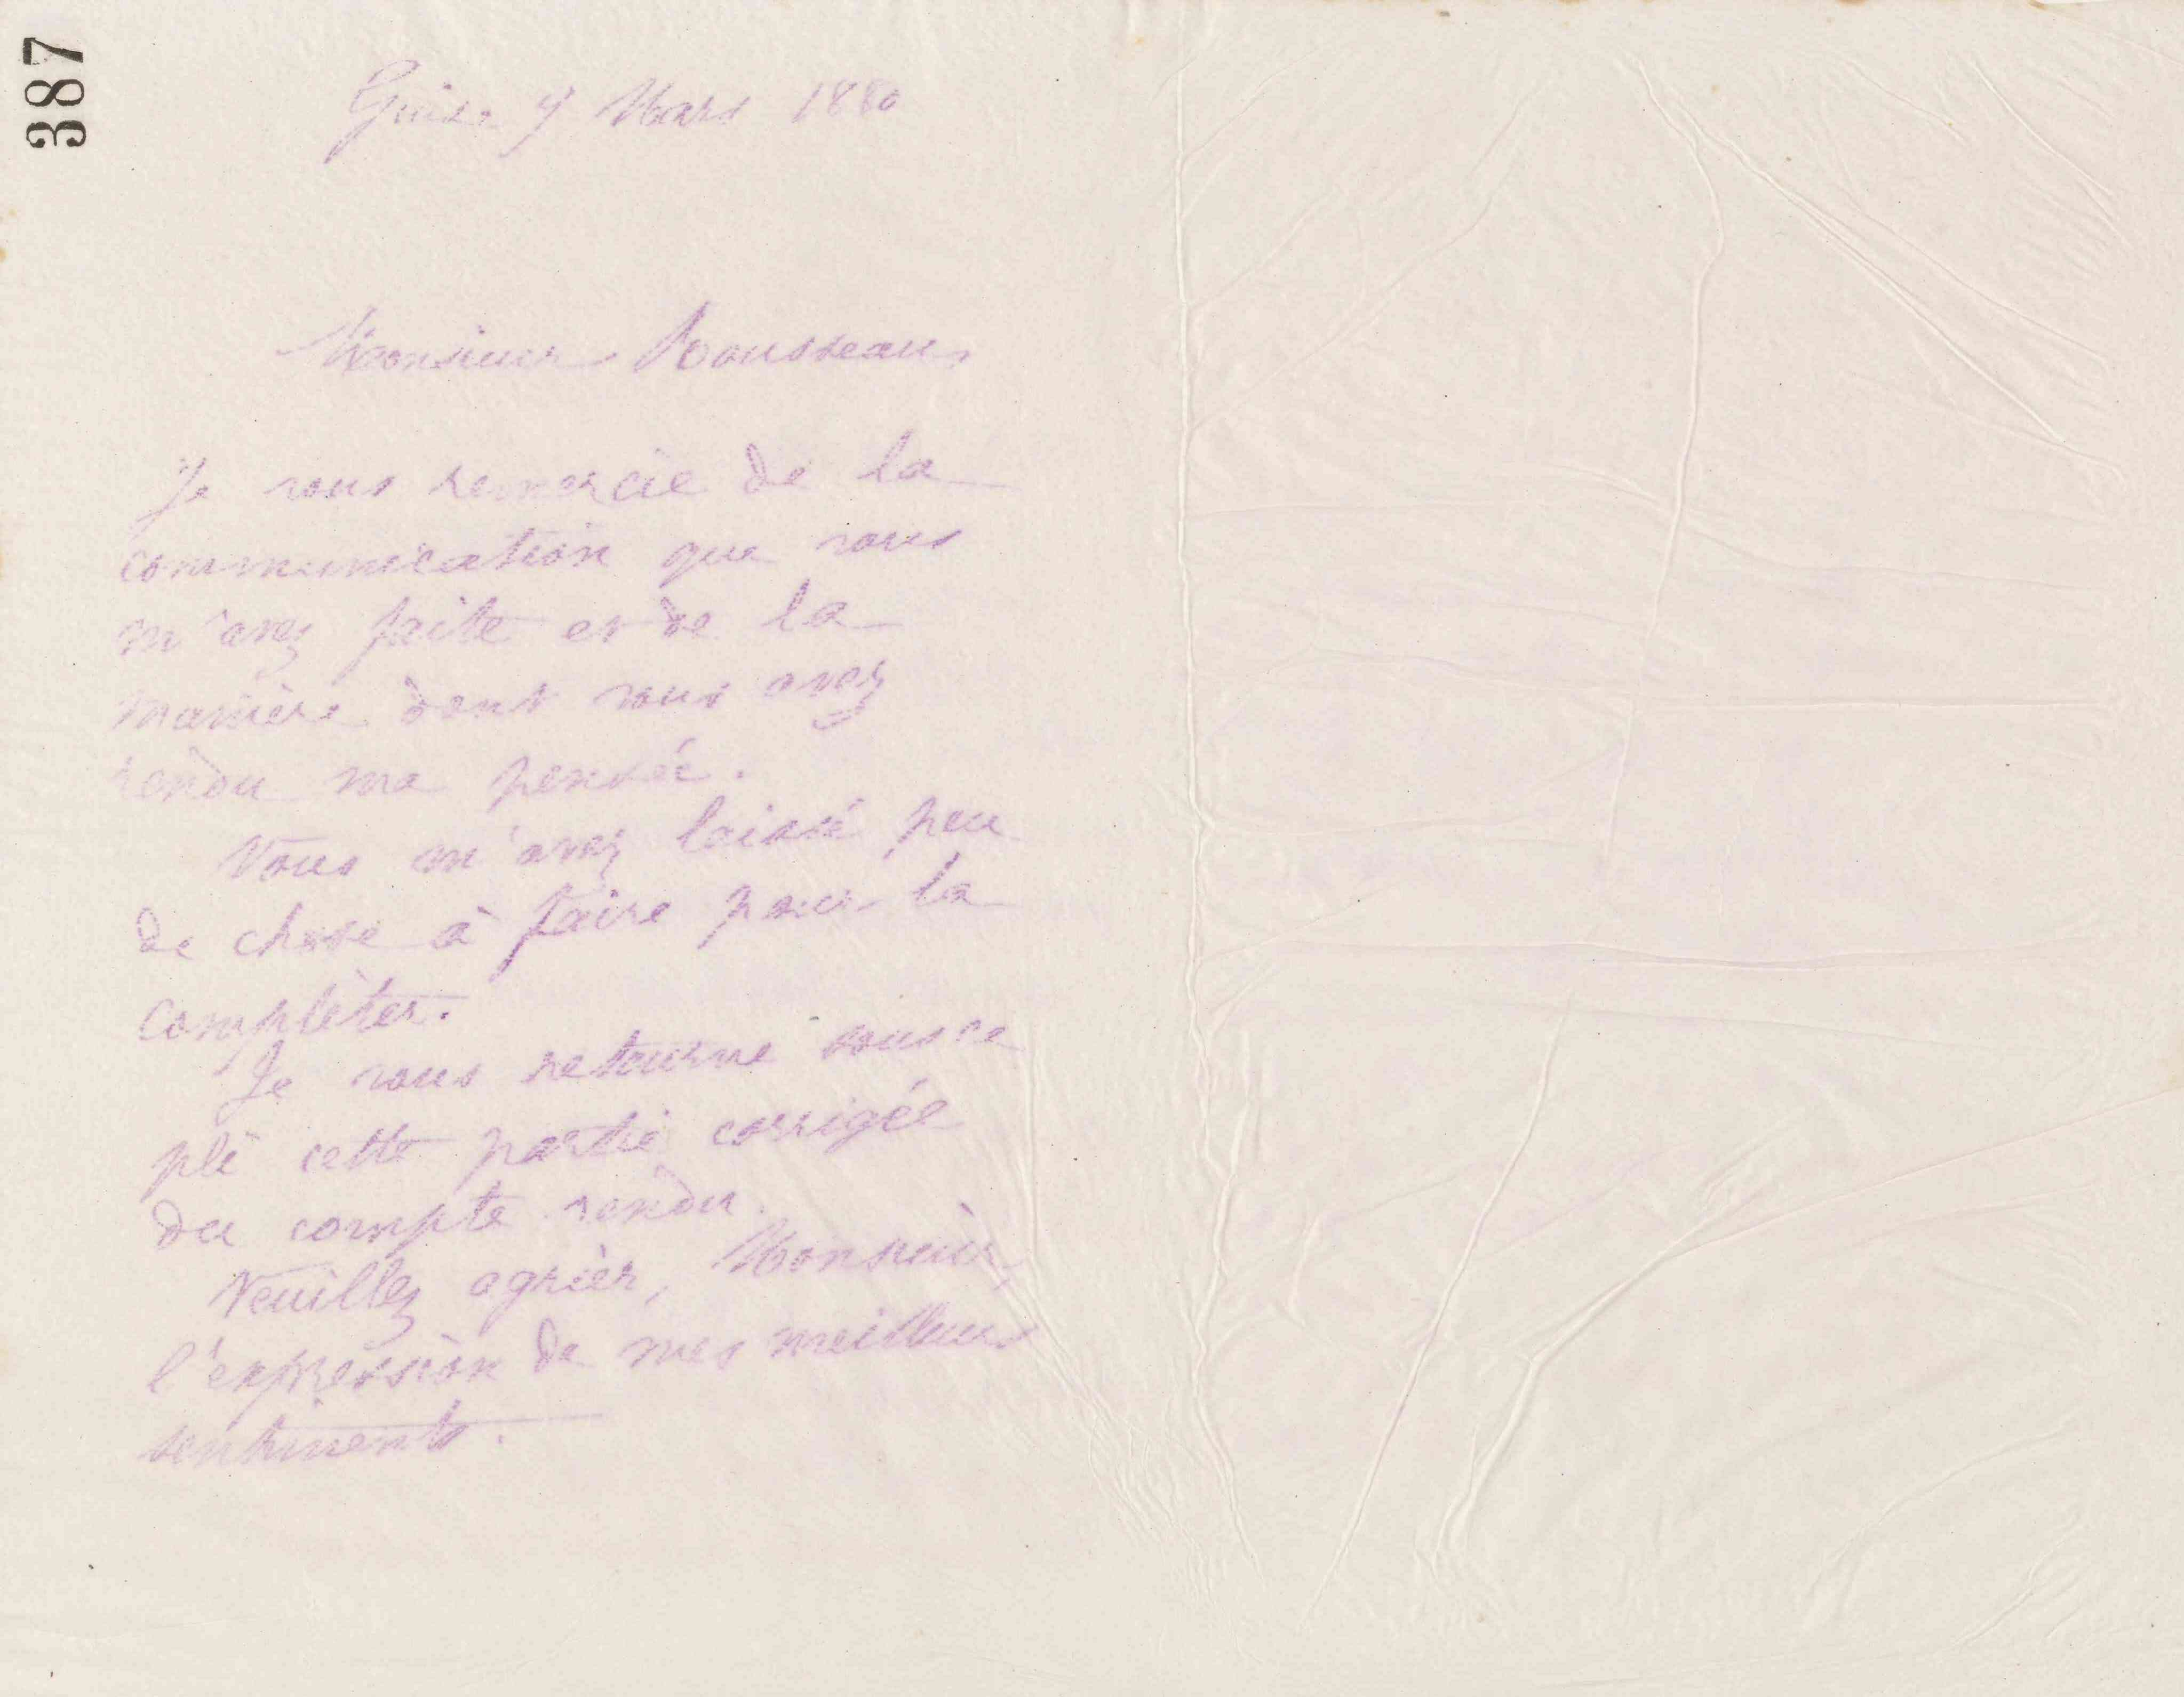 387
Guise 9 Mars 1880
Monsieur Rousseau,
Je vous remercie de la
communication que vous
m'avez faite et de la
manière dont vous avez
rendu ma pensée.
Vous m'avez laissé peu
de chose à faire pour la
complèter.
Je vous retourne sous ce
pli cette partie corrigée
du compte rendu.
Veuillez agréer, Monsieur,
l'expression de mes meilleurs
sentiments.